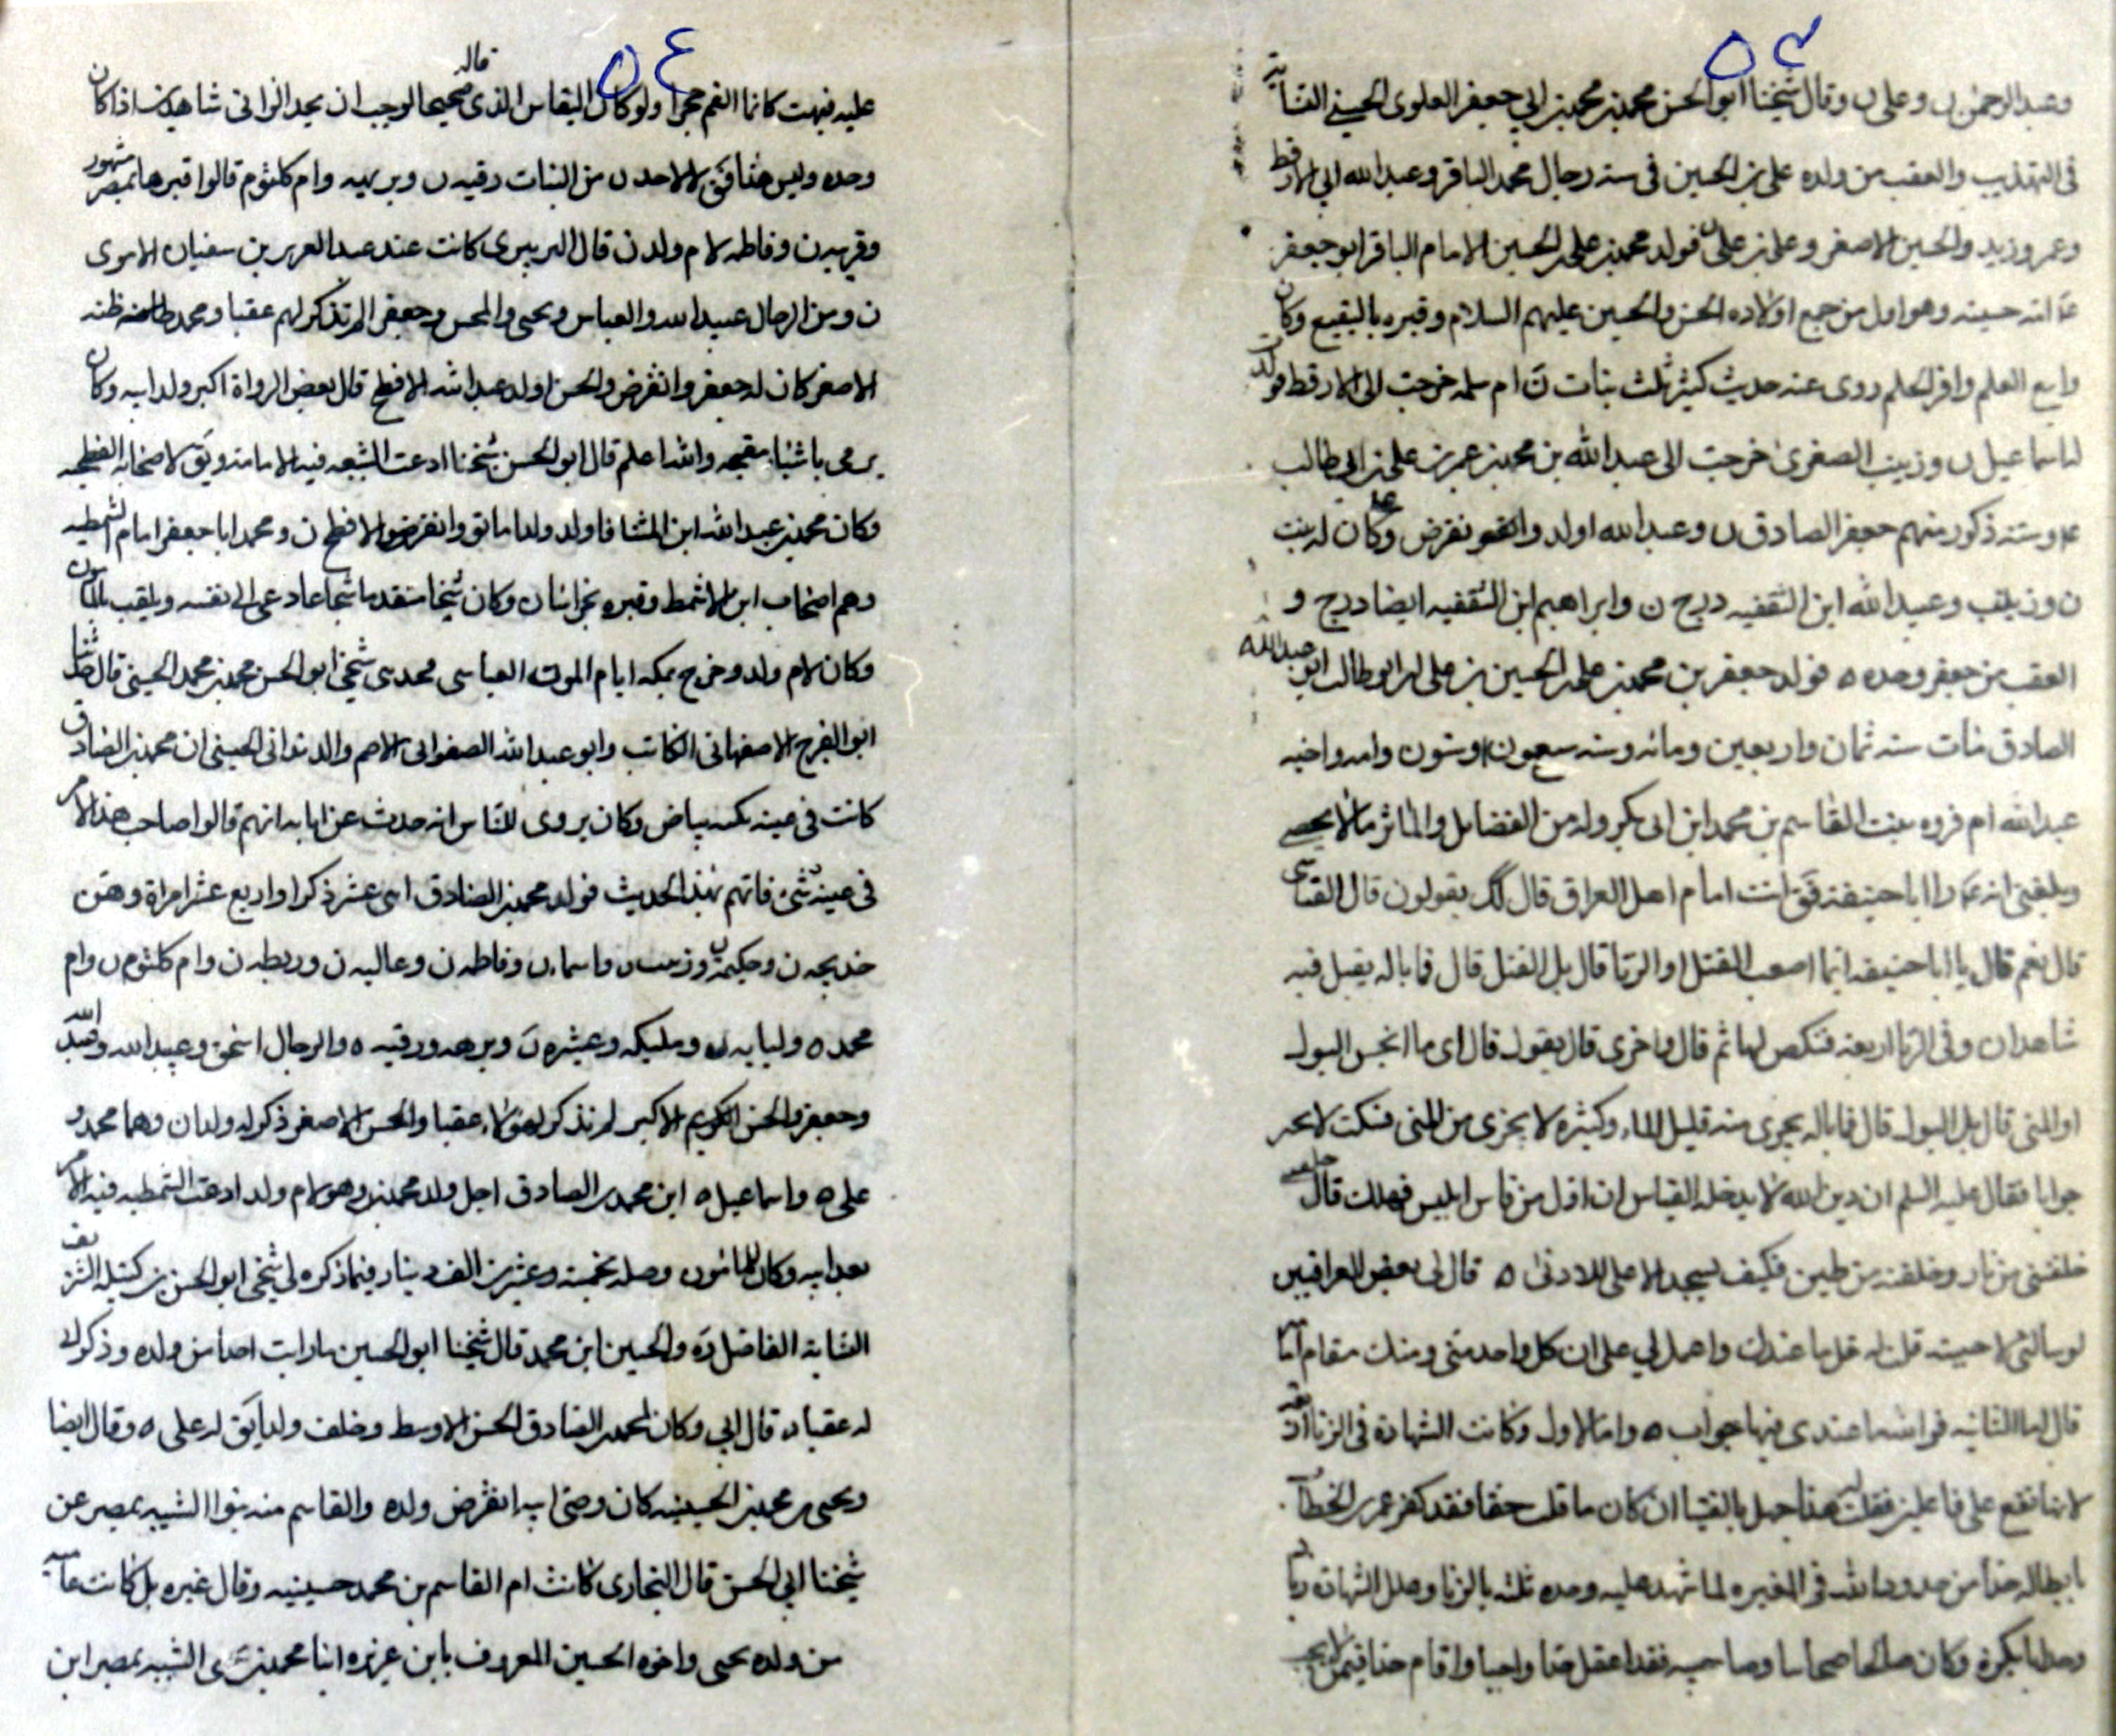 ٥٣
وعبد الرحمن ن وعلى ن وقال شيخنا ابو الحسن محمد بن محمد بن ابي جعفر العلوى الحسيني النسابة
فى التهذيب والعقب من ولده على بن الحسين فى ستة رجال محمد الباقر وعبد الله ابي الارقط
وعمر وزيد والحسين الاصغر وعلى بن على ن فولد محمد بن على بن الحسين الامام الباقر ابو جعفر
امه حسينه وهو اول من جمع اولاده الحسن والحسين عليهم السلام وقبره بالبقيع وكان
واسع العلم وافر الحلم روى عنه حديث كثير ثلث بنات ام سلمه خرجت الى الارقط فولد
لها اسماعيل ن وزينب الصغرى خرجت الى عبد الله بن محمد بن عمر بن على بن ابى طالب
وسته ذكور منهم جعفر الصادق ن وعبد الله اولد وانقرض وكان له بنت
ن وزينب وعبيد الله ابن الثقفيه درج ن وابراهيم ابن الثقفيه ايضا درج و
العقب من جعفر وحده ه فولد جعفر بن محمد بن على بن الحسين بن على بن ابو طالب ابو عبد الله
الصادق مات سنه ثمان واربعين ومائه وسنه سبعون وستون وامه واخيه
عبد الله ام فروه بنت القاسم بن محمد ابن ابى بكر وله من الفضايل والمآثر ما لا يحصى
وبلغنى انه ابا حنيفه انت امام اهل العراق قال كذلك يقولون قال القياسى
قال نعم قال يا ابا حنيفه ايما اصعب القتل او الزنا قال بل القتل قال فما باله يقبل فيه
شاهدان وفى الزنا اربعه فنكص لها ثم قال واخرى قال يقول قال اى ما انجس البول
او المنى قال بل البول قال فما باله يجزى منه قليل الماء وكثيره لا يجزى من المنى فسكت لا يحر
جوابا فقال عليه السلم ان دين الله لا يدخله القياس ان اول من قاس ابليس فهلك قال
خلقتنى من نار وخلقته من طين فكيف يسجد الاعلى للادنى ه قال لى بعض العراقيين
لو سالنى لاجبته قلت له قل ما عندك واعمل لي على ان كل واحد منى ومنك مقام
قال اما الثانيه فوالله ما عندى فيها جواب ه واما الاول وكانت الشهادة فى الزنا اربعه
لانها تقع على فاعلين فقلت هذا جهل بالفتيا ان كان ما قلت حقا فقد كفر عمر بن الخطاب
بابطاله حدا من حدود الله فى المغيره لما شهد عليه وحده ثلثه بالزنا
وجلد ابا بكرة وكان وصاحبيه فقد عطل حدا واجبا واقام حدا فيمن لا يجب
٥٤
عليه فبهت كانما القم حجرا ولو كان القياس الذى قاله صحيحا لوجب ان يحد الزانى شاهدان اذا كان
وحده وليس هذا الاحد ن من البنات رقيه ن وبريهه وام كلثوم قالوا قبرها بمصر مشهور
وقريبه ن وفاطمه لام ولد ن قال الزبيرى كانت عند عبد العزيز بن سفيان الاموى
ن ومن الرجال عبيد الله والعباس ويحيى والمحسن وجعفر لم تذكر لهم عقبا ومحمد
الاصغر كان له جعفر وانقرض والحسن اولد عبد الله الافطح قال بعض الرواة اكبر ولد ابيه وكان
يرمى باشيا قبيحه والله اعلم قال ابو الحسن شيخنا ادعت الشيعه فيه الامامه لاصحابه الفطحيه
وكان محمد بن عبد الله ابن المشا فاولد ولدا ماتوا وانقرض الافطح ن ومحمد ابا جعفر امام الشمطيه
وهم اصحاب ابن الاشمط وقبره بخراسان وكان شيخا متقدما شجاعا دعى الى نفسه ويلقب بالمامون
وكان لام ولد وخرج بمكه ايام المامون العباسى حدثنى شيخى ابو الحسن محمد بن محمد الحسينى قال حدثنا
ابو الفرج الاصفهانى الكاتب وابو عبد الله الصفوانى الاصم والدندانى الحسينى ان محمد بن الصادق
كانت فى عينه نكته بياض وكان يروى للناس انه حدث عن ابايه انهم قالوا صاحب هذا الامر
فى عينه شىء فاتهم بهذا الحديث فولد محمد بن الصادق اثنى عشر ذكرا واربع عشر امراة وهن
خديجه ن وحكيمه ن وزينب ن واسماء ن وفاطمه ن وعاليه ن وريطه ن وام كلثوم ن وام
محمد ه ولبابه ن ومليكه وعيشره ن وبرهه ورقيه ه والرجال اسحق وعبيد الله وعبد الله
وجعفر والحسن الكريم الاكبر لم نذكر لهؤلاء عقبا والحسن الاصغر ذكر له ولدان وهما محمد و
على ه واسماعيل ه ابن محمد بن الصادق اجل ولد محمد بن وهو لام ولد ادعت الشمطيه فيه الامر
بعد ابيه وكان المامون وصله بخمسة وعشرين الف دينار فيما ذكره لى شيخى ابو الحسن بن كتيله الشريف
النسابه الفاضل ره والحسين ابن محمد قال شيخنا ابو الحسين ما رايت احدا من ولده وذكر
له عقبا ن قال ابي وكان لمحمد بن الصادق الحسن الاوسط وخلف ولدا يق له على ه وقال ايضا
ويحيى بن محمد بن الحسينيه كان وصى ابيه انقرض ولده والقاسم منه بنوا الشبيه بمصر عن
شيخنا ابي الحسن قال البخارى كانت ام القاسم بن محمد حسينيه وقال غيره بل كانت
من ولده يحيى واخوه الحسين المعروف بابن عزيزه ابنا محمد بن الشبيه بمصر ابن